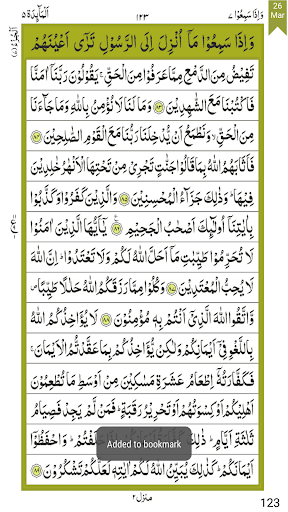 وَاِذَا سَمِعُوْا ٧ ١٢٣ اَلْمَآئِدَة ٥
26 Mar
وَاِذَا سَمِعُوْا مَآ اُنْزِلَ اِلَى الرَّسُوْلِ تَرٰٓى اَعْيُنَهُمْ
تَفِيْضُ مِنَ الدَّمْعِ مِمَّا عَرَفُوْا مِنَ الْحَقِّ ۚ يَقُوْلُوْنَ رَبَّنَآ اٰمَنَّا
فَاكْتُبْنَا مَعَ الشّٰهِدِيْنَ ﴿٨٣﴾ وَمَا لَنَا لَا نُؤْمِنُ بِاللّٰهِ وَمَا جَآءَنَا
مِنَ الْحَقِّ ۙ وَنَطْمَعُ اَنْ يُّدْخِلَنَا رَبُّنَا مَعَ الْقَوْمِ الصّٰلِحِيْنَ ﴿٨٤﴾
فَاَثَابَهُمُ اللّٰهُ بِمَا قَالُوْا جَنّٰتٍ تَجْرِيْ مِنْ تَحْتِهَا الْاَنْهٰرُ خٰلِدِيْنَ
فِيْهَا ؕ وَذٰلِكَ جَزَآءُ الْمُحْسِنِيْنَ ﴿٨٥﴾ وَالَّذِيْنَ كَفَرُوْا وَكَذَّبُوْا
بِاٰيٰتِنَآ اُولٰٓئِكَ اَصْحٰبُ الْجَحِيْمِ ﴿٨٦﴾ يٰٓاَيُّهَا الَّذِيْنَ اٰمَنُوْا
لَا تُحَرِّمُوْا طَيِّبٰتِ مَآ اَحَلَّ اللّٰهُ لَكُمْ وَلَا تَعْتَدُوْا ؕ اِنَّ اللّٰهَ
لَا يُحِبُّ الْمُعْتَدِيْنَ ﴿٨٧﴾ وَكُلُوْا مِمَّا رَزَقَكُمُ اللّٰهُ حَلٰلًا طَيِّبًا ۪
وَّاتَّقُوا اللّٰهَ الَّذِيْٓ اَنْتُمْ بِهٖ مُؤْمِنُوْنَ ﴿٨٨﴾ لَا يُؤَاخِذُكُمُ اللّٰهُ
بِاللَّغْوِ فِيْٓ اَيْمَانِكُمْ وَلٰكِنْ يُّؤَاخِذُكُمْ بِمَا عَقَّدْتُّمُ الْاَيْمَانَ ۚ
فَكَفَّارَتُهٗٓ اِطْعَامُ عَشَرَةِ مَسٰكِيْنَ مِنْ اَوْسَطِ مَا تُطْعِمُوْنَ
اَهْلِيْكُمْ اَوْ كِسْوَتُهُمْ اَوْ تَحْرِيْرُ رَقَبَةٍ ؕ فَمَنْ لَّمْ يَجِدْ فَصِيَامُ
ثَلٰثَةِ اَيَّامٍ ؕ ذٰلِكَ حَلَفْتُمْ ؕ وَاحْفَظُوْٓا
اَيْمَانَكُمْ ؕ كَذٰلِكَ يُبَيِّنُ اللّٰهُ لَكُمْ اٰيٰتِهٖ لَعَلَّكُمْ تَشْكُرُوْنَ ﴿٨٩﴾
Added to bookmark
منزل ٢
123